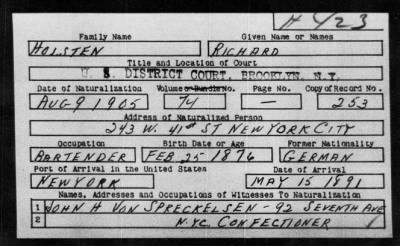 H 423
Family Name Given Name or Names
HOLSTEN RICHARD
Title and Location of Court
U. S. DISTRICT COURT, BROOKLYN, N.Y.
Date of Naturalization Volume or Bundle No. Page No. Copy of Record No.
AUG 9 1905 74 — 253
Address of Naturalized Person
243 W. 41st ST NEW YORK CITY
Occupation Birth Date or Age Former Nationality
BARTENDER FEB 25 1876 GERMAN
Port of Arrival in the United States Date of Arrival
NEW YORK MAY 15 1891
Names, Addresses and Occupations of Witnesses To Naturalization
1 JOHN H VON SPRECKELSEN - 92 SEVENTH AVE
2 NYC CONFECTIONER